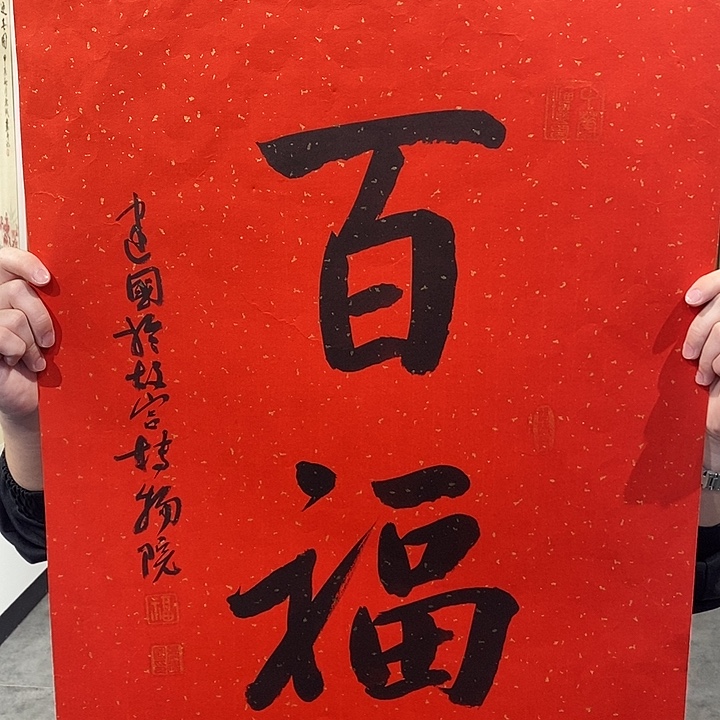 百
福
建國於故宮博物院